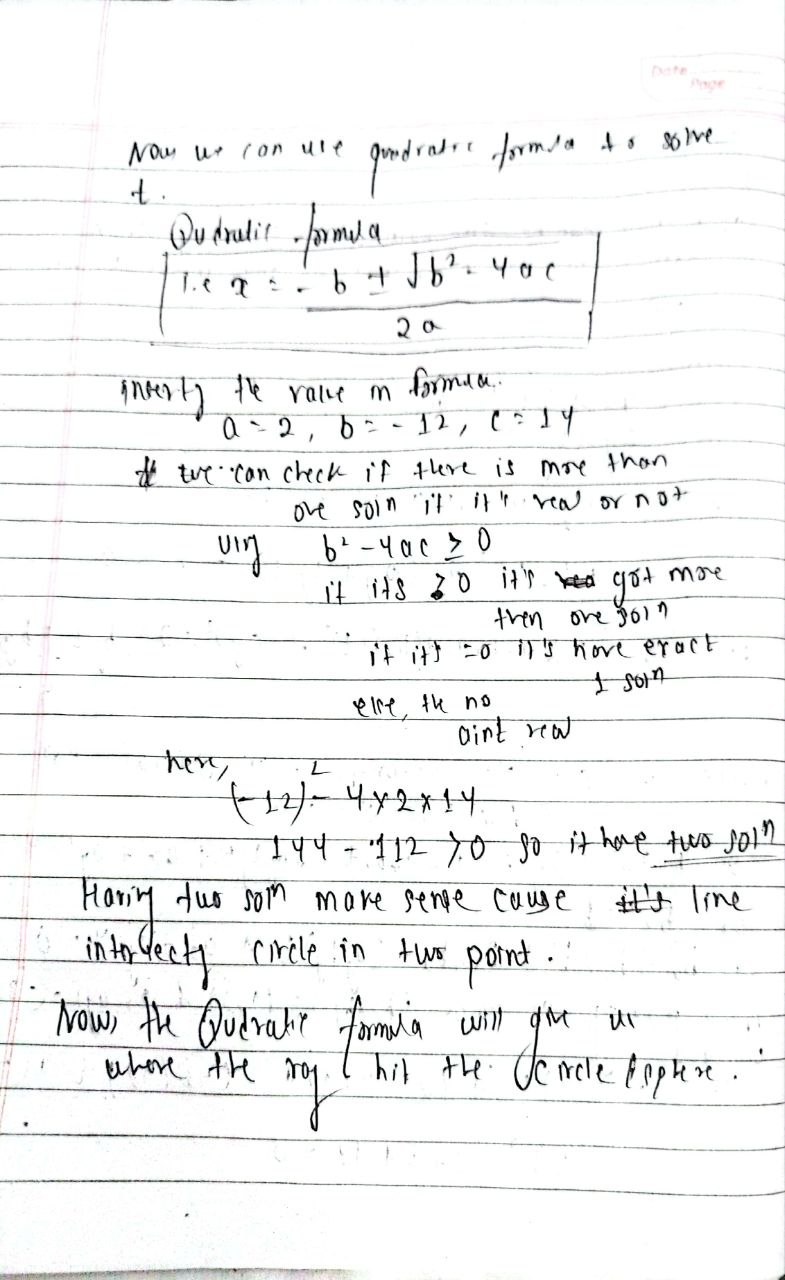 Date
Page
Now we can use quadratic formula to solve
t.
Qudratic formula
i.e x = - b ± √b² - 4ac
2a
inserting the value in formula.
a = 2, b = - 12, c = 14
we can check if there is more than
one soln if it's real or not
using b² - 4ac ≥ 0
if its ≥ 0 it's got more
then one soln
if its = 0 it's have exact
1 soln
else, the no
aint real
here,
(-12)² - 4x2x14
144 - 112 > 0 so it have two soln
Having two soln make sense cause it's line
intersects circle in two point.
Now, the Qudratic formula will give us
where the ray hit the circle/sphere.